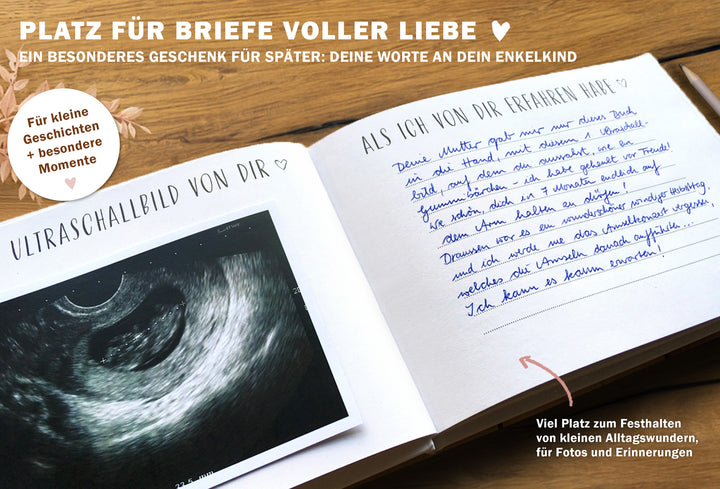 PLATZ FÜR BRIEFE VOLLER LIEBE
EIN BESONDERES GESCHENK FÜR SPÄTER: DEINE WORTE AN DEIN ENKELKIND
Für kleine
Geschichten
+ besondere
Momente
ULTRASCHALLBILD VON DIR
22.5 mm
ALS ICH VON DIR ERFAHREN HABE
Deine Mutter gab mir nur dieses Buch
in die Hand, mit diesem 1. Ultraschall-
bild, auf dem du aussahst, wie ein
Gummibärchen - ich habe geheult vor Freude!
Wie schön, dich in 7 Monaten endlich auf
dem Arm halten zu dürfen!
Draussen war es ein wunderschöner sonniger Herbsttag,
und ich werde nie das Amselkonzert vergessen,
welches die Amseln danach aufführten...
Ich kann es kaum erwarten!
Viel Platz zum Festhalten
von kleinen Alltagswundern,
für Fotos und Erinnerungen